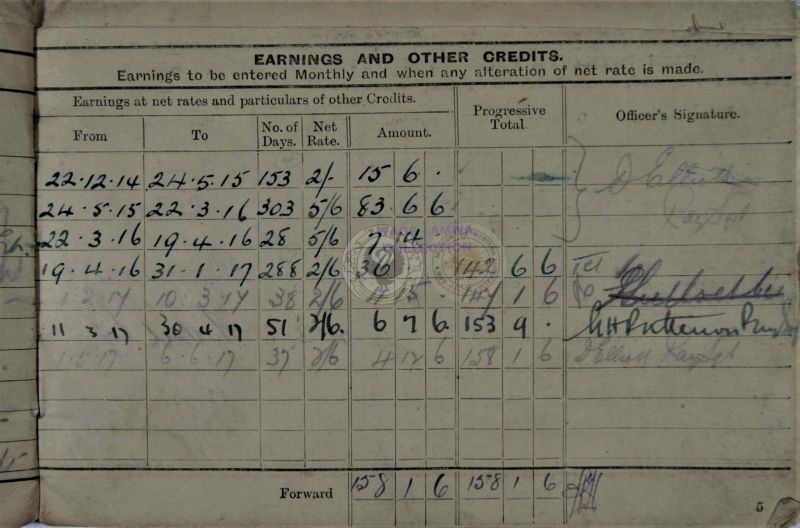 EARNINGS AND OTHER CREDITS.
Earnings to be entered Monthly and when any alteration of net rate is made.
Earnings at net rates and particulars of other Credits. Progressive Total. Officer's Signature.
From To No. of Days. Net Rate. Amount.
22.12.14 24.5.15 153 2/- 15 6 .
24.5.15 22.3.16 303 5/6 83 6 6
22.3.16 19.4.16 28 5/6 7 14 .
19.4.16 31.1.17 288 2/6 36 . 142 6 6
1.2.17 10.3.17 38 2/6 4 15 . 147 1 6
11 3 17 30 4 17 51 2/6. 6 7 6. 153 9 .
1.5.17 6.6.17 37 2/6 4 12 6 158 1 6 D Elliott
Forward 158 1 6 158 1 6
5